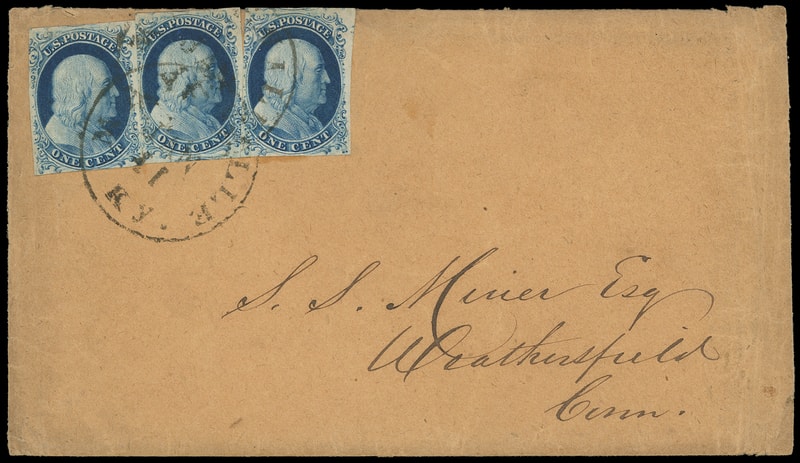 U.S. POSTAGE
ONE CENT
U.S. POSTAGE
ONE CENT
U.S. POSTAGE
ONE CENT
S. S. Miner Esq
Weathersfield
Conn.